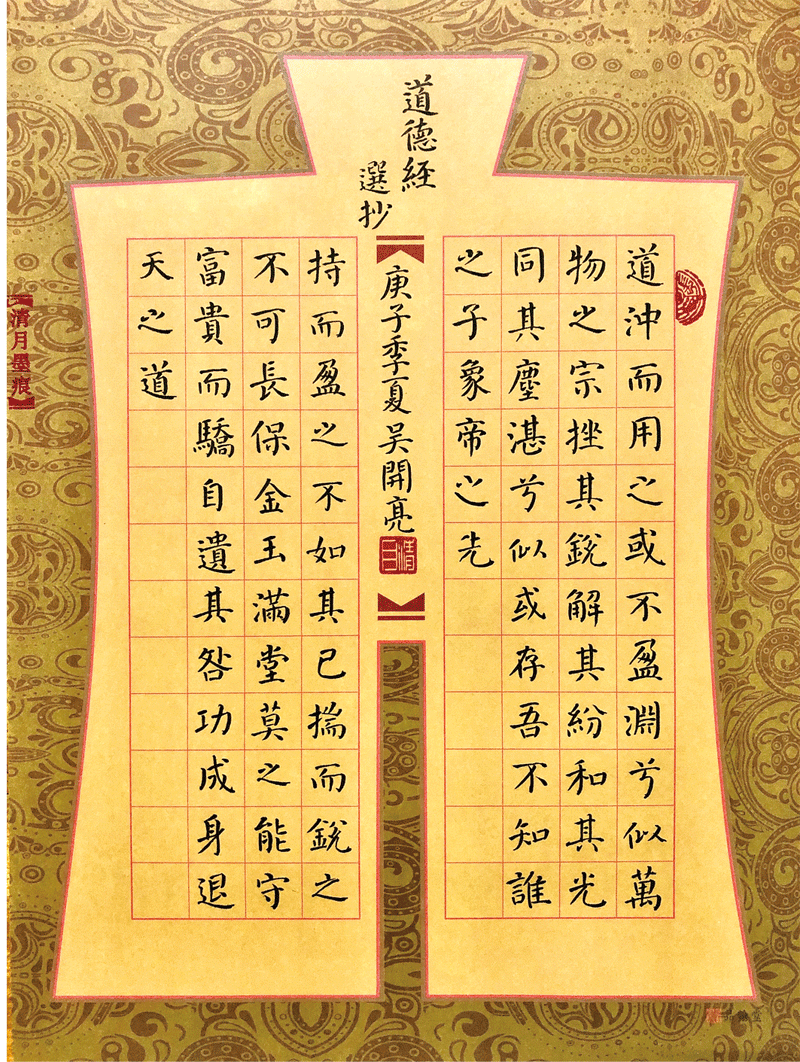 道德经
選抄
道沖而用之或不盈淵兮似萬
物之宗挫其銳解其紛和其光
同其塵湛兮似或存吾不知誰
之子象帝之先
庚子季夏吴開亮
清月
持而盈之不如其已揣而銳之
不可長保金玉滿堂莫之能守
富貴而驕自遺其咎功成身退
天之道
清月墨痕